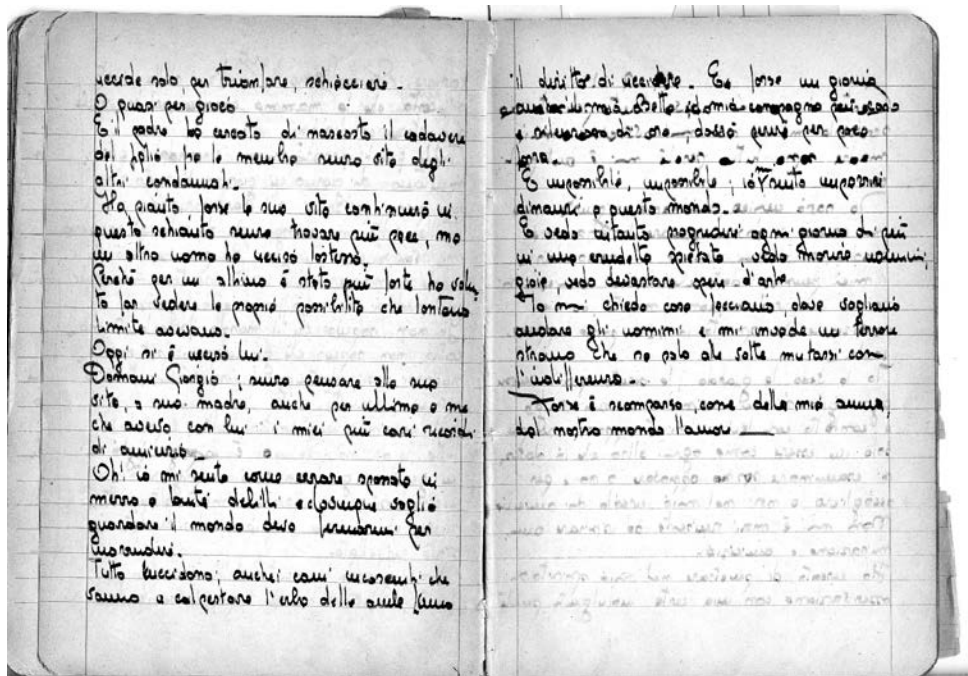 uccide solo, per trionfare, schiacciare.
O quasi per gioco
E il padre ha cercato di nascosto il cadavere
del figlio tra le membra senza vita degli
altri condannati.
Ha pianto forse la sua vita continuerà in
questo schianto senza trovare più pace, ma
un altro uomo ha ucciso lo stesso.
Perché per un attimo è stato più forte ha volu
to far vedere le proprie possibilità che lontano
limite avevano.
Oggi si è ucciso lui.
Domani Giorgio; senza pensare alla sua
vita, a sua madre, anche per ultimo a me
che avevo con lui i miei più cari ricordi
di amicizia
Oh! io mi sento come errare spossato in
mezzo a tanti delitti e dovunque voglio
guardare il mondo devo fermarmi per
inorridire.
Tutto uccidono; anche i cani incoscenti che
sanno a calpestare l'erba delle aiuole hanno
il diritto di uccidere. Ed forse un giorno
compagno
di oro, per poco
E impossibile, impossibile; io sento
dinanzi a questo mondo.
E vedo intanto progredire ogni giorno di più
in una crudeltà spietata, vedo morire uomini,
gioie, vedo devastare opere d'arte.
Io mi chiedo cosa facciamo, dove vogliano
andare gli uomini e mi invade un terrore
strano che sa solo alle volte mutarsi con
l'indifferenza.
Forse è scomparso, come dalla mia anima,
dal nostro mondo l'amore